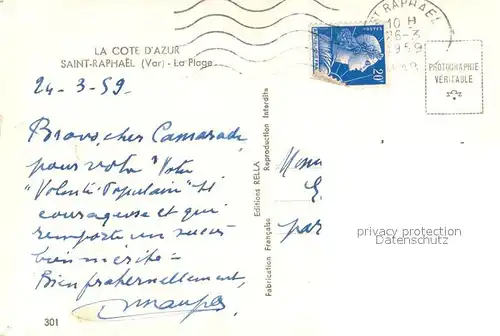 LA COTE D'AZUR
SAINT-RAPHAËL (Var) - La Plage
24-3-59
Bravo, cher Camarade,
pour votre "Votre
"Volonté Populaire" si
courageuse et qui
remporte un succès
bien mérité =
Bien fraternellement,
301
Editions RELLA
Fabrication Française Reproduction Interdite
ST RAPHAEL
10 H
26-3
1959
20F
PHOTOGRAPHIE
VÉRITABLE
par
privacy protection
Datenschutz